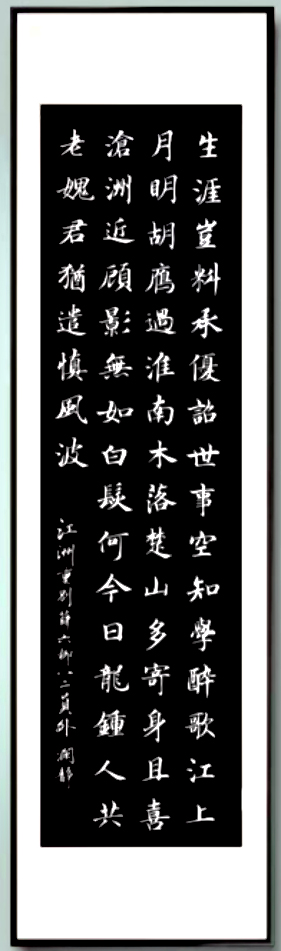 生涯豈料承優詔世事空知學醉歌江上
月明胡鴈過淮南木落楚山多寄身且喜
滄洲近顧影無如白髮何今日龍鍾人共
老媿君猶遣慎風波
江洲重別薛六柳八二員外